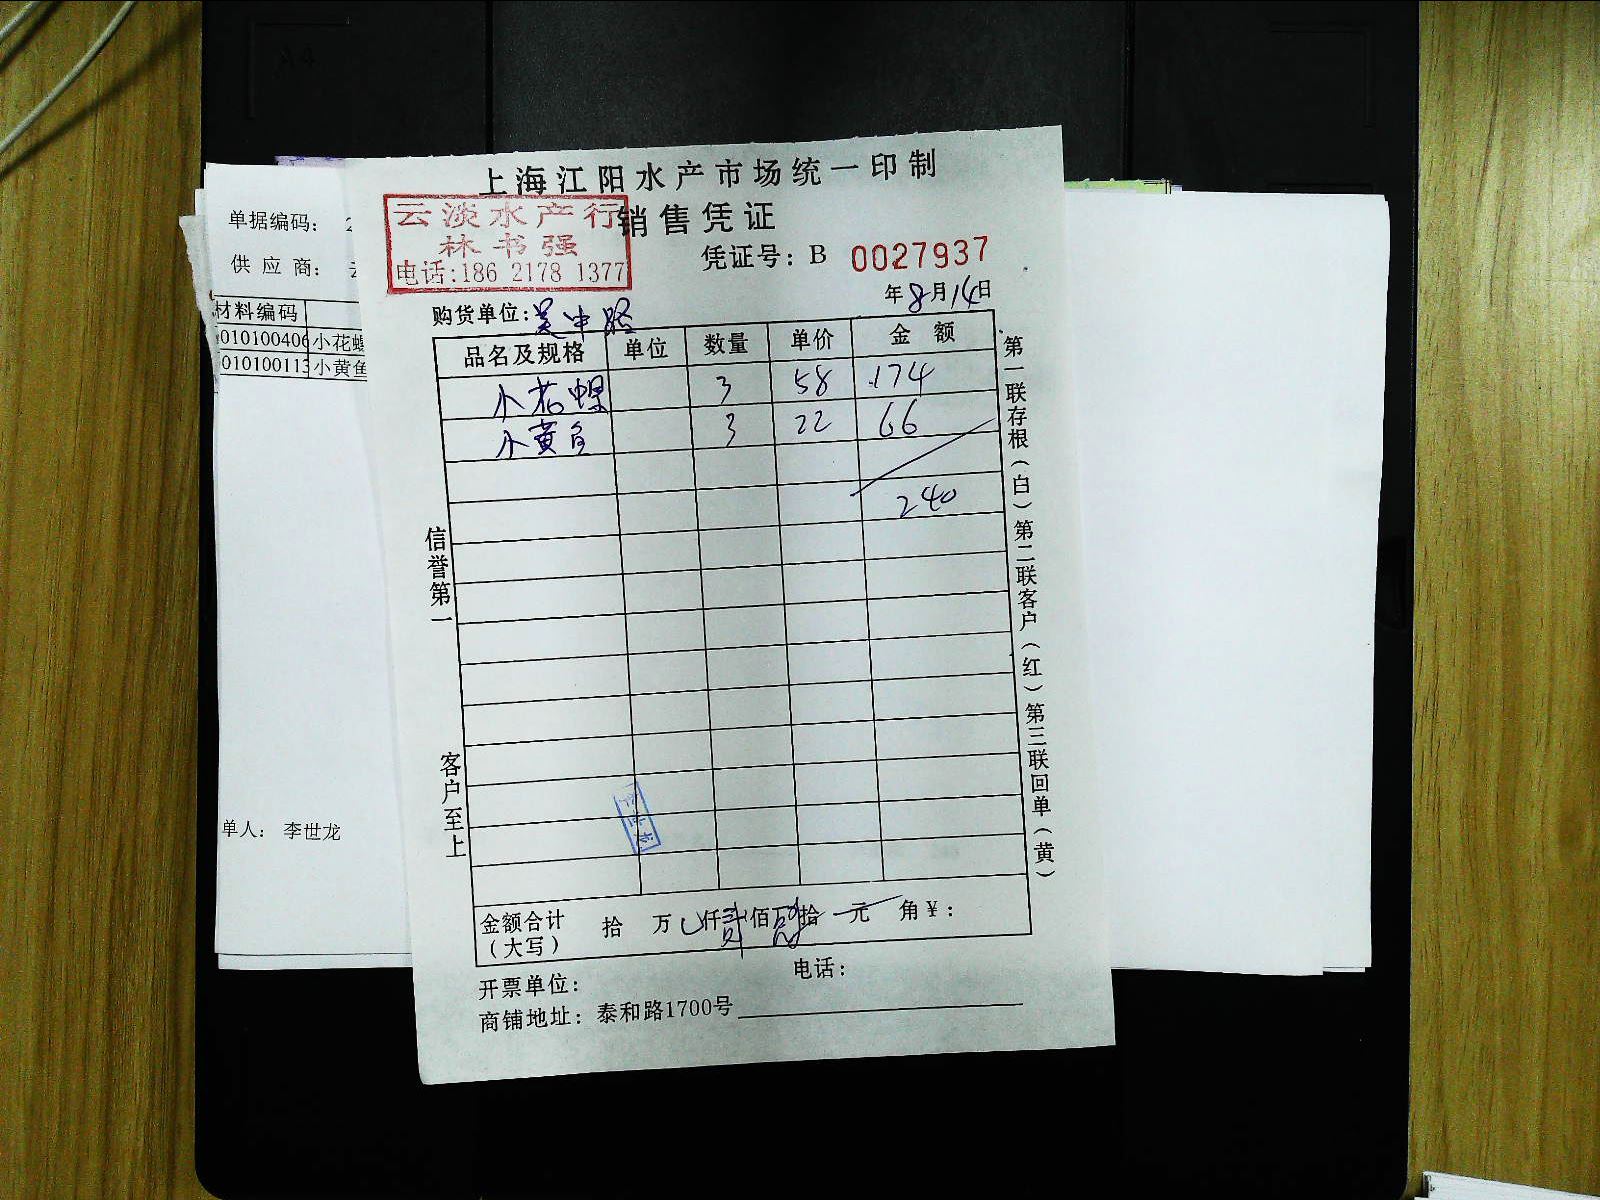 A4
上海江阳水产市场统一印制
销售凭证
云淡水产行
林书强
电话:186 2178 1377
凭证号：B 0027937
年8月14日
购货单位：吴中路
品名及规格 单位 数量 单价 金额
小花螺 3 58 174
小黄鱼 3 22 66
240
金额合计（大写） 拾 万 仟贰佰肆拾元 角￥：
开票单位： 电话：
商铺地址：泰和路1700号
信誉第一
客户至上
第一联存根（白）第二联客户（红）第三联回单（黄）
单据编码： 2
供应商：
材料编码
010100406 小花螺
010100113 小黄鱼
单人： 李世龙